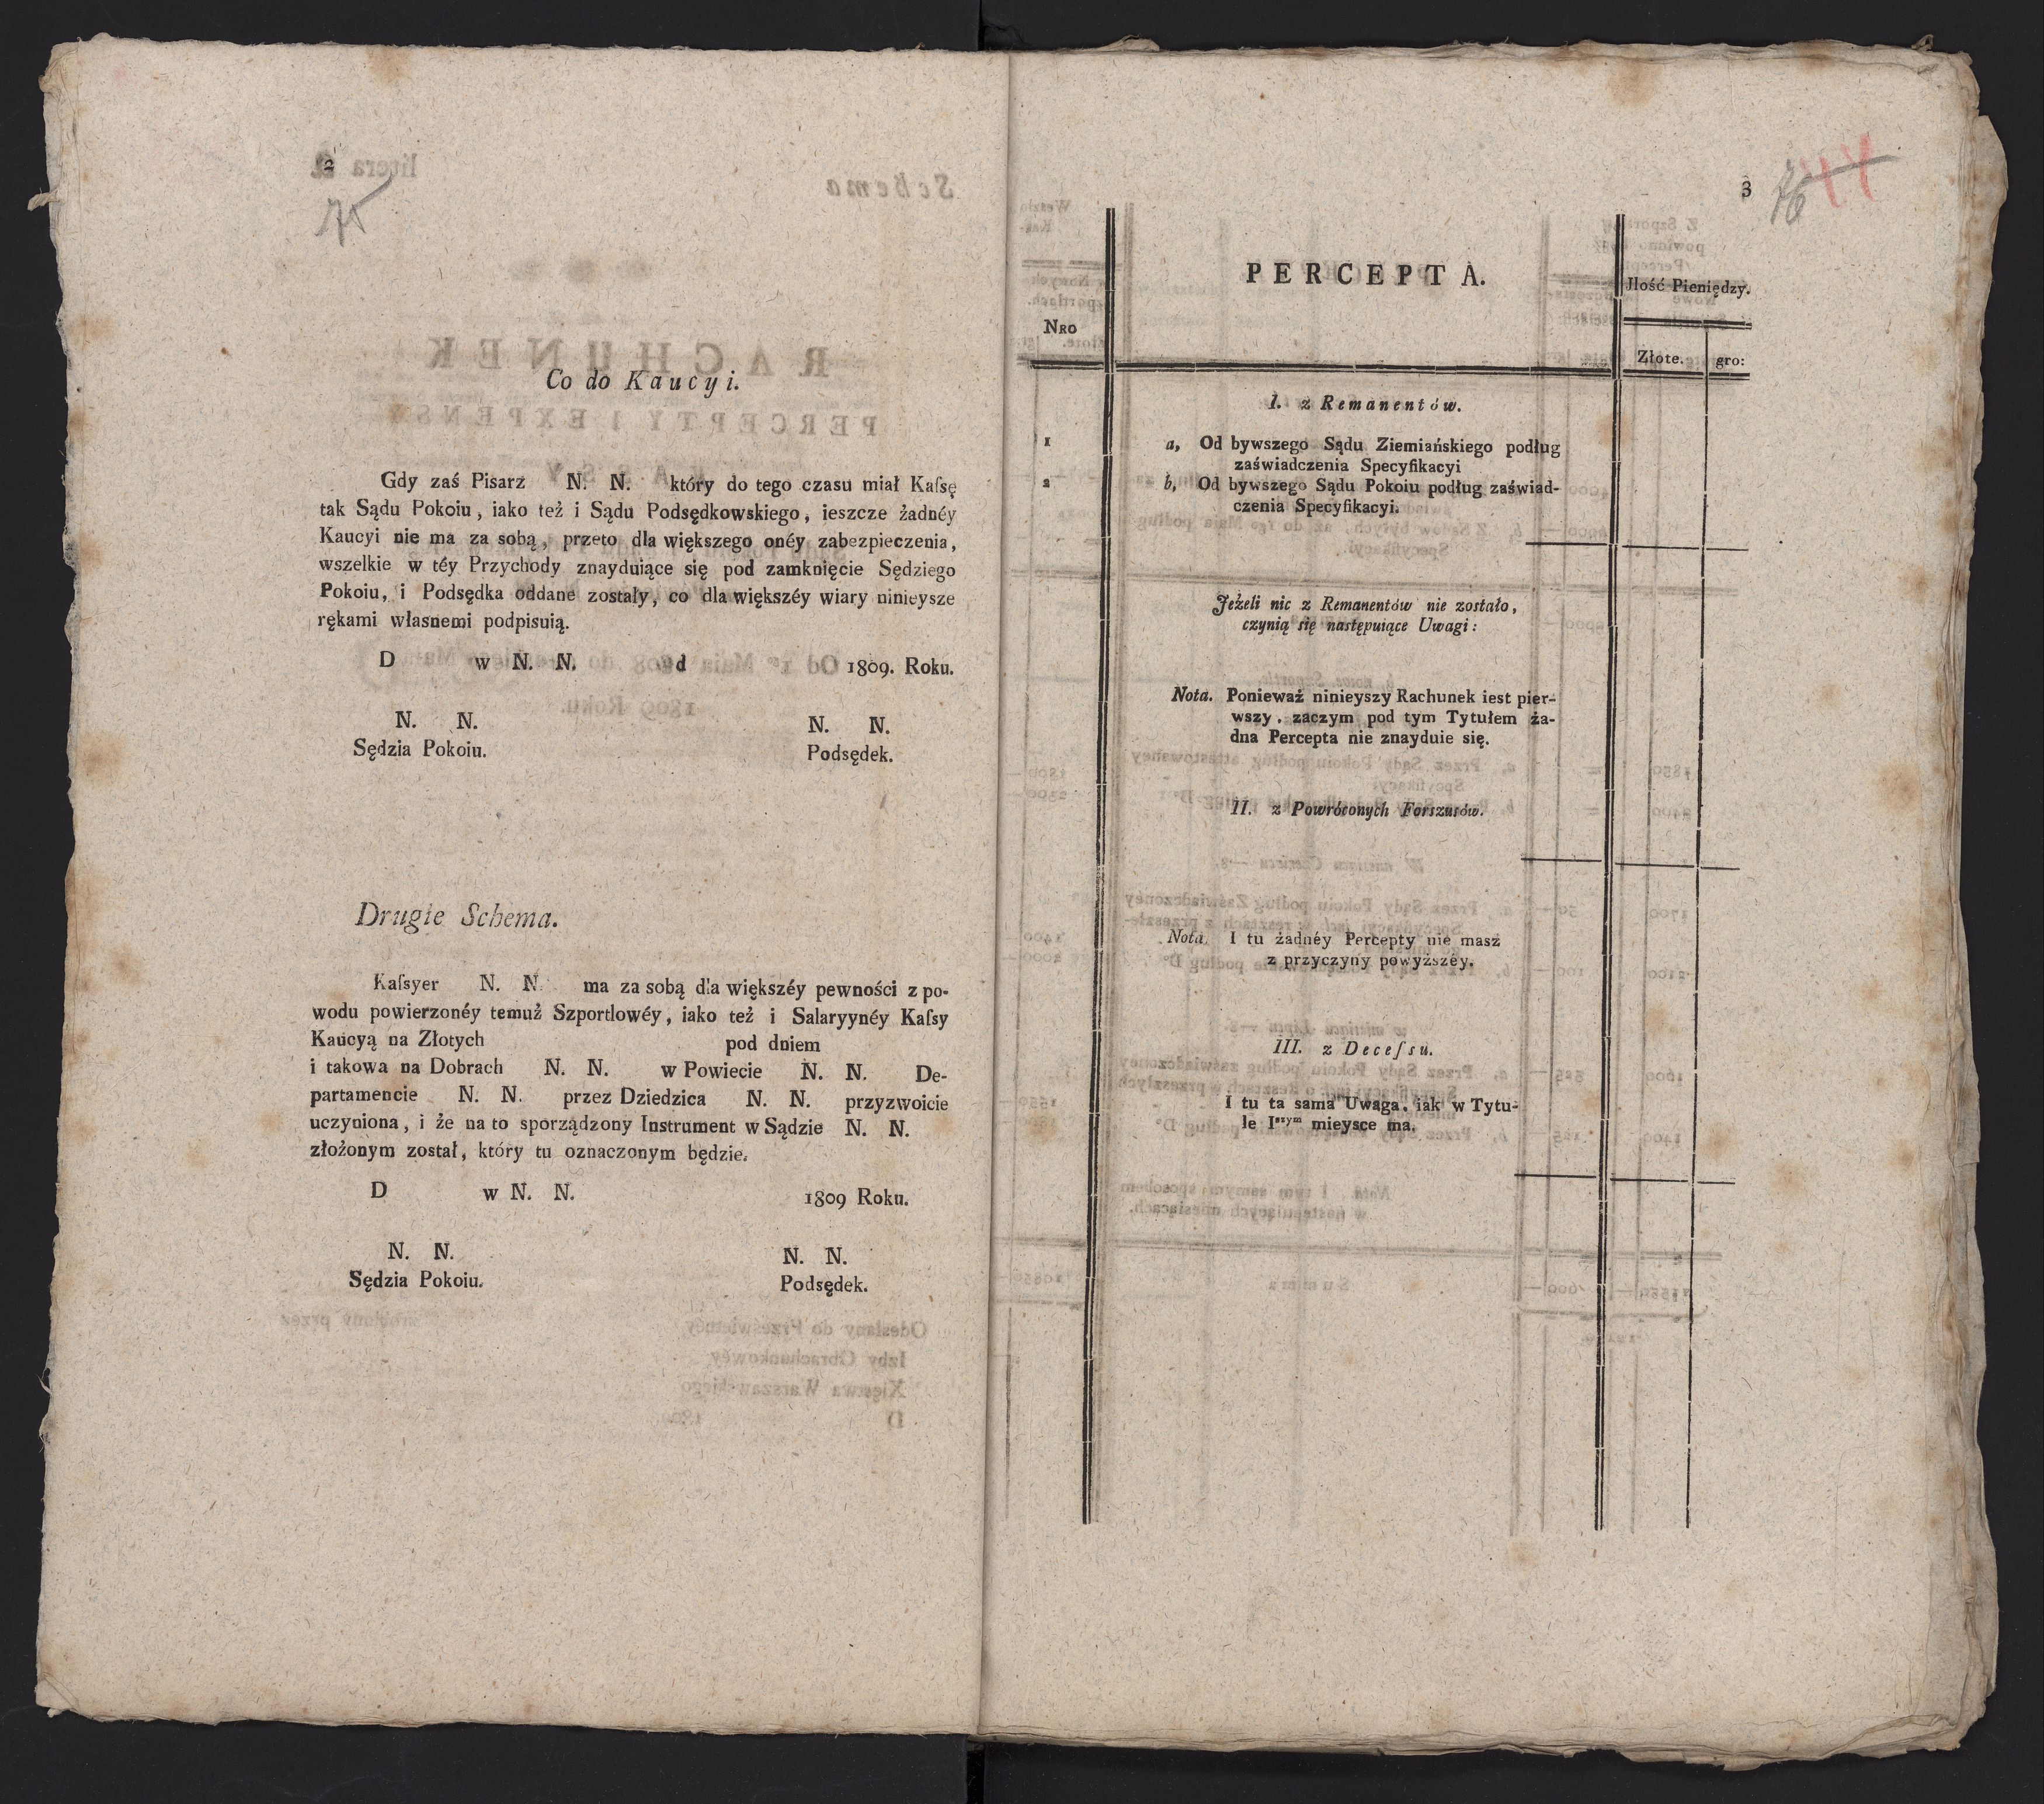 2
75
Co do Kaucyi.
Gdy zaś Pisarz N. N. który do tego czasu miał Kaſsę
tak Sądu Pokoiu, iako też i Sądu Podsędkowskiego, ieszcze żadnéy
Kaucyi nie ma za sobą, przeto dla większego onéy zabezpieczenia,
wszelkie w téy Przychody znayduiące się pod zamknięcie Sędziego
Pokoiu, i Podsędka oddane zostały, co dla większéy wiary ninieysze
rękami własnemi podpisuią.
D w N. N. d 1809. Roku.
N. N. N. N.
Sędzia Pokoiu. Podsędek.
Drugie Schema.
Kaſsyer N. N. ma za sobą dla większéy pewności z po-
wodu powierzonéy temuż Szportlowéy, iako też i Salaryynéy Kaſsy
Kaucyą na Złotych pod dniem
i takowa na Dobrach N. N. w Powiecie N. N. De-
partamencie N. N. przez Dziedzica N. N. przyzwoicie
uczyniona, i że na to sporządzony Instrument w Sądzie N. N.
złożonym został, który tu oznaczonym będzie.
D w N. N. 1809 Roku.
N. N. N. N.
Sędzia Pokoiu. Podsędek.
3
76
PERCEPTA.
Jlość Pieniędzy.
Nro
Złote. gro:
I. z Remanentów.
1 a, Od bywszego Sądu Ziemiańskiego podług
zaświadczenia Specyfikacyi
2 b, Od bywszego Sądu Pokoiu podług zaświad-
czenia Specyfikacyi.
Jeżeli nic z Remanentów nie zostało,
czynią się następuiące Uwagi:
Nota. Ponieważ ninieyszy Rachunek iest pier-
wszy, zaczym pod tym Tytułem ża-
dna Percepta nie znayduie się.
II. z Powróconych Forszusów.
Nota. I tu żadnéy Percepty nie masz
z przyczyny powyższéy.
III. z Deceſsu.
I tu ta sama Uwaga, iak w Tytu-
le Iszym mieysce ma.